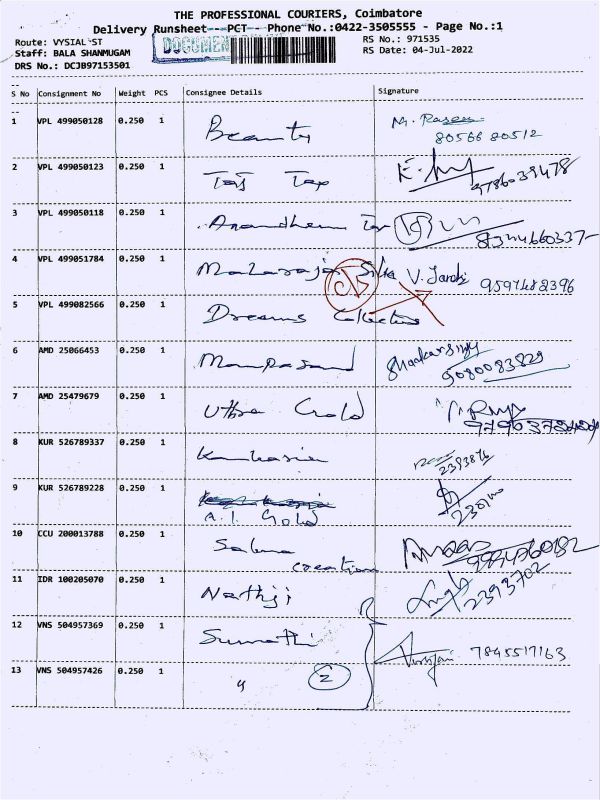 THE PROFESSIONAL COURIERS, Coimbatore
Delivery Runsheet---PCT---Phone No.:0422-3505555 - Page No.:1
Route: VYSIAL ST
DOCUMEN
RS No.: 971535
Staff: BALA SHANMUGAM
RS Date: 04-Jul-2022
DRS No.: DCJB97153501
S No Consignment No Weight PCS Consignee Details Signature
1 VPL 499050128 0.250 1 Beauty
80566 80512
2 VPL 499050123 0.250 1 Taj Tex
9786039478
3 VPL 499050118 0.250 1 Anandhem Tex
8344660337-
4 VPL 499051784 0.250 1 Maharaja Silks V. Janaki 9597482396
5 VPL 499082566 0.250 1 Dreams Collections
6 AMD 25066453 0.250 1 Manpasand
9080083829
7 AMD 25479679 0.250 1 Uthra Gold
8 KUR 526789337 0.250 1
2393876
9 KUR 526789228 0.250 1
A.I. Gold
10 CCU 200013788 0.250 1 Salma
creation
11 IDR 100205070 0.250 1 Nathji
2393702
12 VNS 504957369 0.250 1 Sumathi
7845517163
13 VNS 504957426 0.250 1 " 2